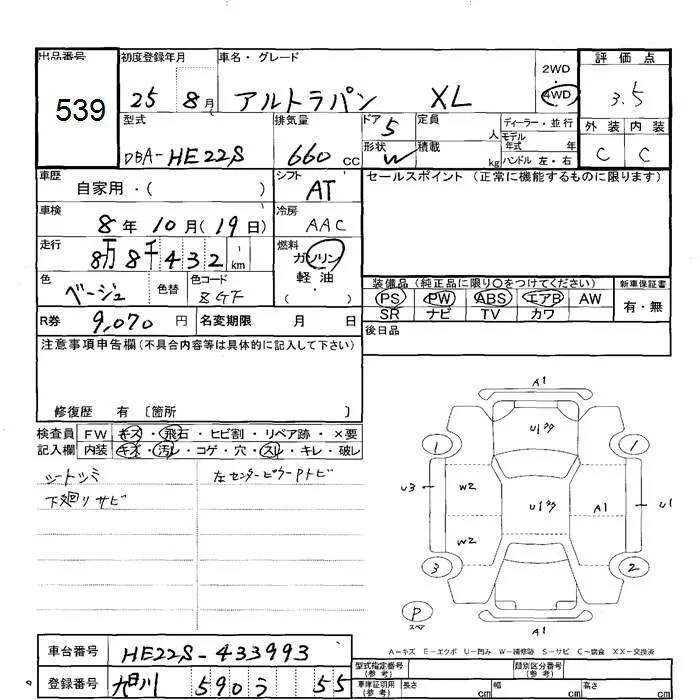 出品番号 初度登録年月 車名・グレード 2WD 評価点
539 25 8月 アルトラパン XL 4WD 3.5
型式 排気量 ドア 5 定員 人 ディーラー・並行 外装 内装
モデル年式 年
DBA-HE22S 660 CC 形状 W 積載 kg ハンドル 左・右 C C
車歴 自家用・( ) シフト AT セールスポイント (正常に機能するものに限ります)
車検 8年10月(19日) 冷房 AAC
走行 8万8千432 km 燃料 ガソリン
軽油・( )
色 ベージュ 色替 色コード ZGF
装備品(純正品に限り○をつけてください) 新車保証書
PS PW ABS エアB AW 有・無
SR ナビ TV カワ
R券 9,070円 名変期限 月 日 後日品
注意事項申告欄(不具合内容等は具体的に記入して下さい)
修復歴 有 〔箇所 〕
検査員 FW キズ・飛石・ヒビ割・リペア跡・×要
記入欄 内装 キズ・汚レ・コゲ・穴・スレ・キレ・破レ
シートシミ 左センターピラーPトビ
下廻りサビ
A1
U1
1 1
U3 W2 U1 A1 U1
W2
3 2
P
スペア
A1
A=キズ E=エクボ U=凹み W=補修跡 S=サビ C=腐食 XX=交換済
車台番号 HE22S-433993 型式指定番号(参考) 類別区分番号(参考)
登録番号 旭川 590 う 55 車庫証明用(参考) 長さ cm 幅 cm 高さ cm